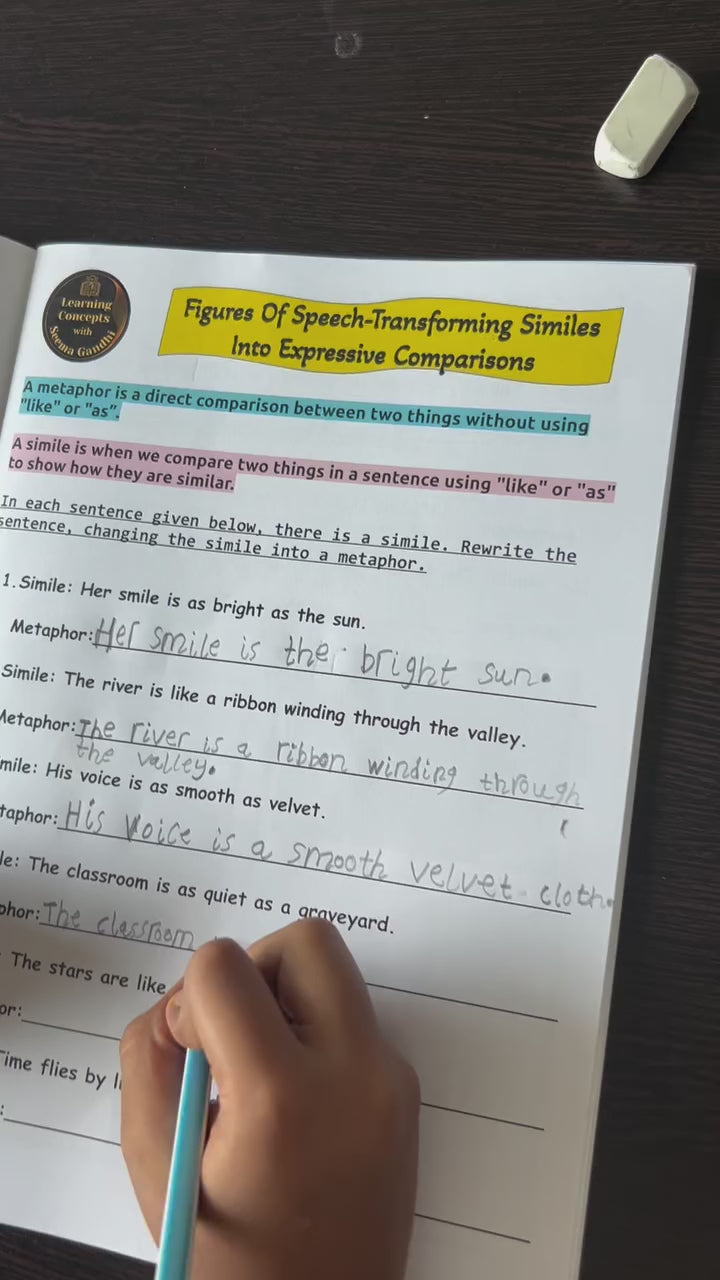 Learning
Concepts
with
Seema Gandhi
Figures Of Speech-Transforming Similes
Into Expressive Comparisons
A metaphor is a direct comparison between two things without using
"like" or "as".
A simile is when we compare two things in a sentence using "like" or "as"
to show how they are similar.
In each sentence given below, there is a simile. Rewrite the
sentence, changing the simile into a metaphor.
1. Simile: Her smile is as bright as the sun.
Metaphor: Her smile is the bright sun.
Simile: The river is like a ribbon winding through the valley.
Metaphor: The river is a ribbon winding through
the valley.
mile: His voice is as smooth as velvet.
taphor: His voice is a smooth velvet cloth.
le: The classroom is as quiet as a graveyard.
phor: The classroom
The stars are like
or:
Time flies by l
: